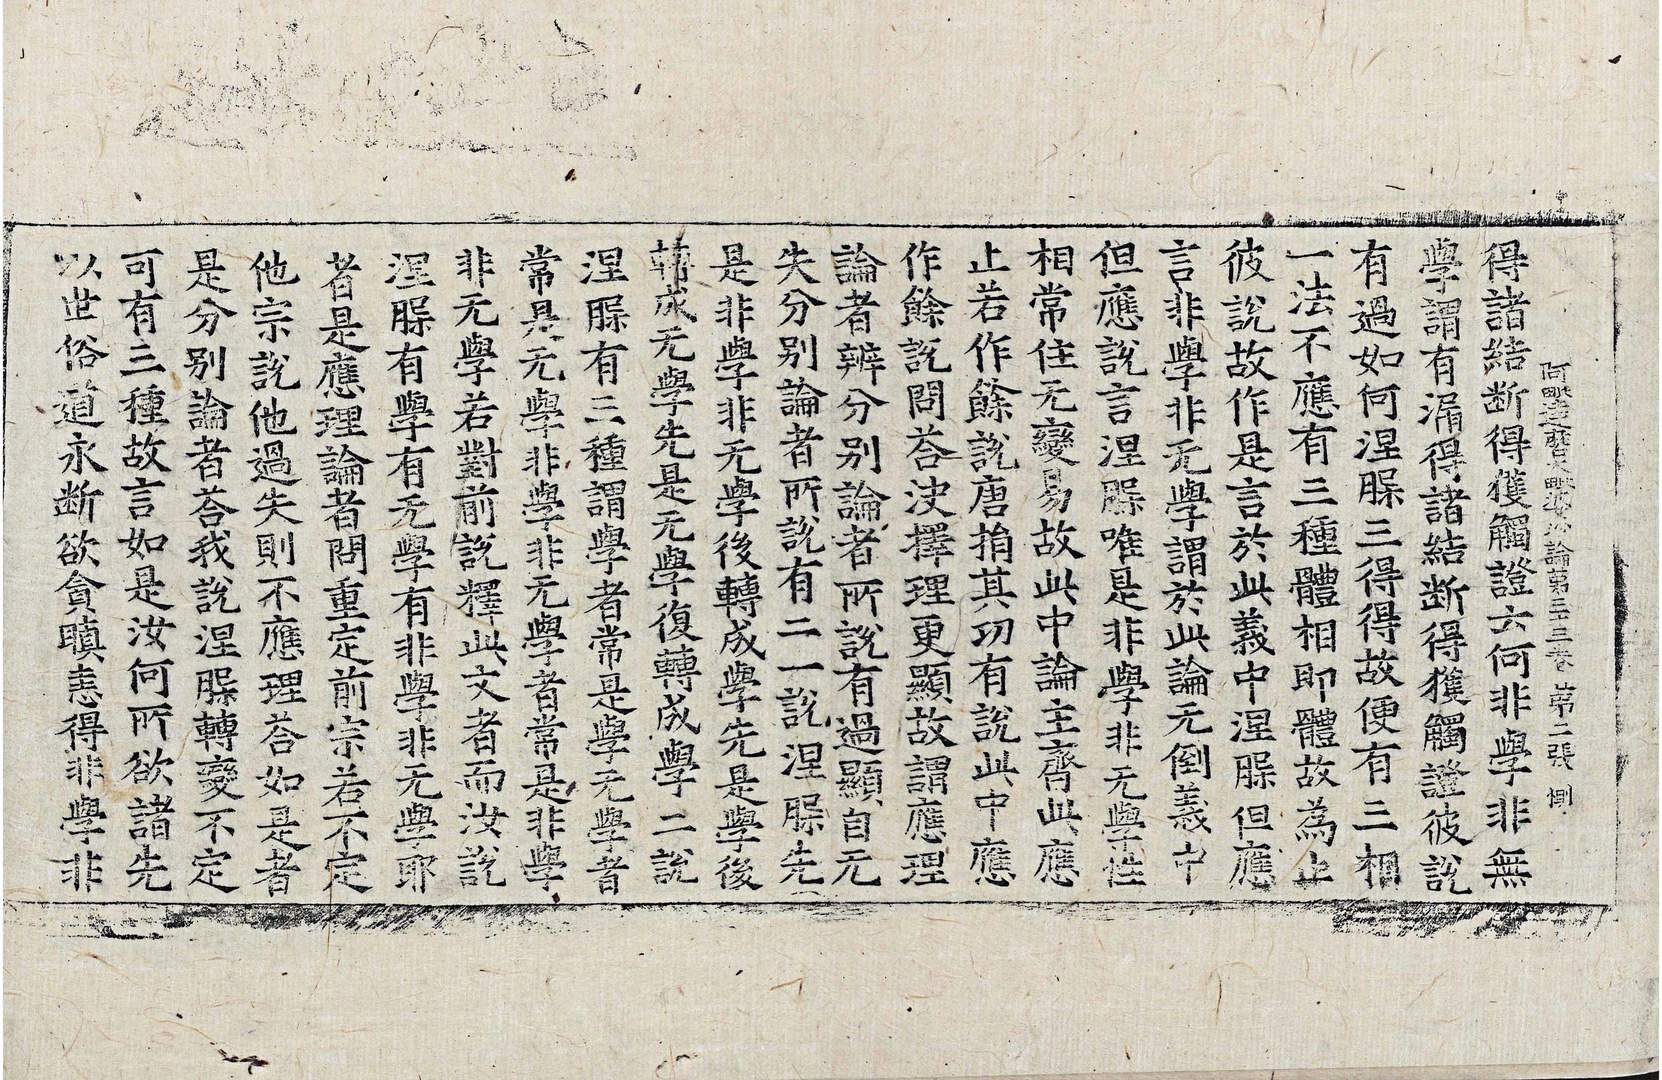 阿毗達磨大毗婆沙論第三十三卷 第二張 惻
得諸結断得獲觸證云何非學非無
學謂有漏得諸結断得獲觸證彼說
有過如何涅槃三得得故便有三相
一法不應有三種體相即體故為止
彼說故作是言於此義中涅槃但應
言非學非无學謂於此論无倒義中
但應說言涅槃唯是非學非无學性
相常住无變易故此中論主齊此應
止若作餘說唐捐其功有說此中應
作餘說問荅決擇理更顯故謂應理
論者辨分别論者所說有過顯自无
失分别論者所說有二一說涅槃先
是非學非无學後轉成學先是學後
轉成无學先是无學復轉成學二說
涅槃有三種謂學者常是學无學者
常是无學非學非无學者常是非學
非无學若對前說釋此文者而汝說
涅槃有學有无學有非學非无學耶
者是應理論者問重定前宗若不定
他宗說他過失則不應理荅如是者
是分别論者荅我說涅槃轉變不定
可有三種故言如是汝何所欲諸先
以世俗道永断欲貪瞋恚得非學非